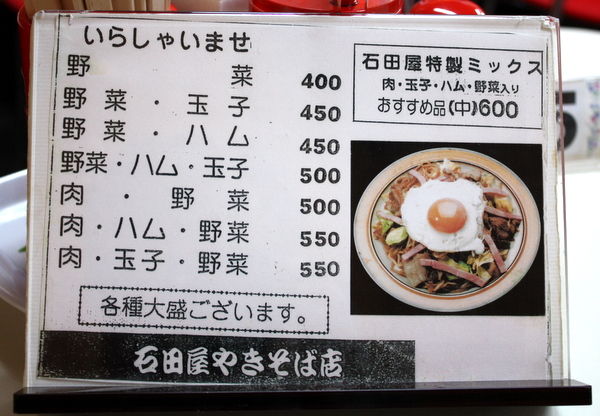 いらしゃいませ
野菜 400
野菜・玉子 450
野菜・ハム 450
野菜・ハム・玉子 500
肉・野菜 500
肉・ハム・野菜 550
肉・玉子・野菜 550
各種大盛ございます。
石田屋やきそば店
石田屋特製ミックス
肉・玉子・ハム・野菜入り
おすすめ品(中)600
5